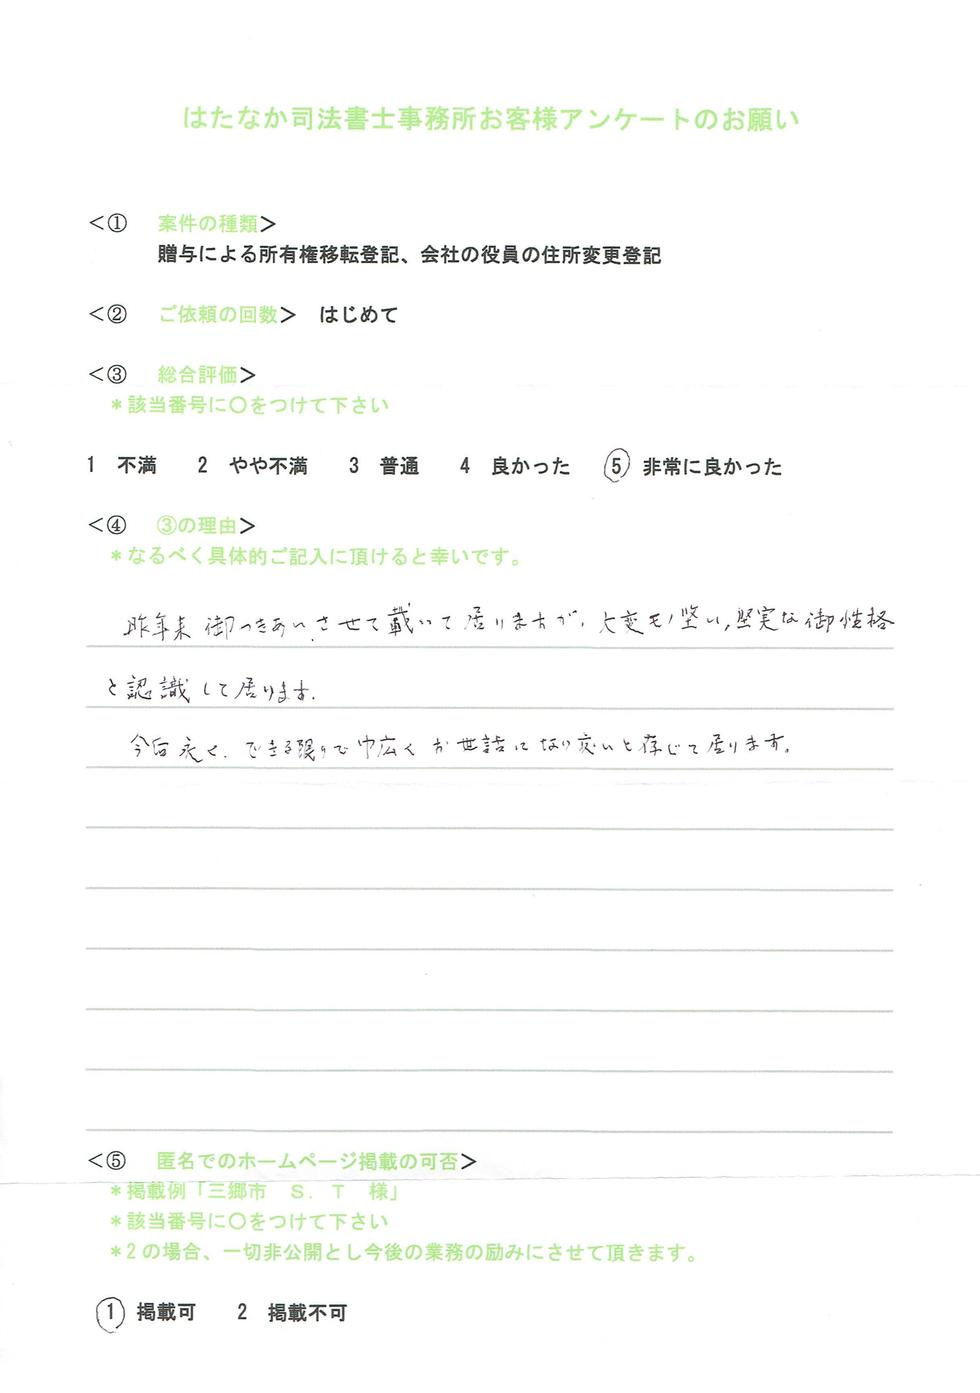 はたなか司法書士事務所お客様アンケートのお願い
＜①　案件の種類＞
贈与による所有権移転登記、会社の役員の住所変更登記
＜②　ご依頼の回数＞　はじめて
＜③　総合評価＞
＊該当番号に〇をつけて下さい
1　不満　2　やや不満　3　普通　4　良かった　5　非常に良かった
＜④　③の理由＞
＊なるべく具体的ご記入に頂けると幸いです。
昨年来御つきあいさせて戴いて居りますが、大変モノ堅い、堅実な御性格
と認識して居ります。
今后永く、できる限りで巾広くお世話になり度いと存じて居ります。
＜⑤　匿名でのホームページ掲載の可否＞
＊掲載例「三郷市　Ｓ．Ｔ　様」
＊該当番号に〇をつけて下さい
＊2の場合、一切非公開とし今後の業務の励みにさせて頂きます。
1　掲載可　2　掲載不可